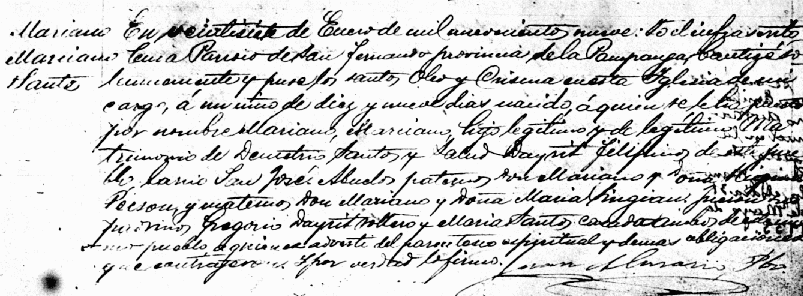 Mariano En veintisiete de Enero de mil novecientos nueve: Yo el infrascrito
Marciano Cura Parroco de San Fernando provincia de la Pampanga, bauticé so
Santos lemnemente y puse los santos Oleo y Crisma en esta Yglesia de mi
cargo, á un niño de diez y nueve dias nacido, á quien se le ha puesto
por nombre Mariano, Marciano, hijo legitimo y de legitimo Ma
trimonio de Demetrio Santos y Salud Dayrit Filipinos de este pue
blo barrio San José: Abuelos paternos Don Mariano y Doña
Pecson, y maternos Don Mariano y Doña Maria Singian. fueron
padrinos Gregorio Dayrit soltero y Maria Santos casada ambos de
mo pueblo á quienes advertí del parentesco espiritual y demas obligaciones
que contrajeron. Y por verdad lo firmo. Pbro.